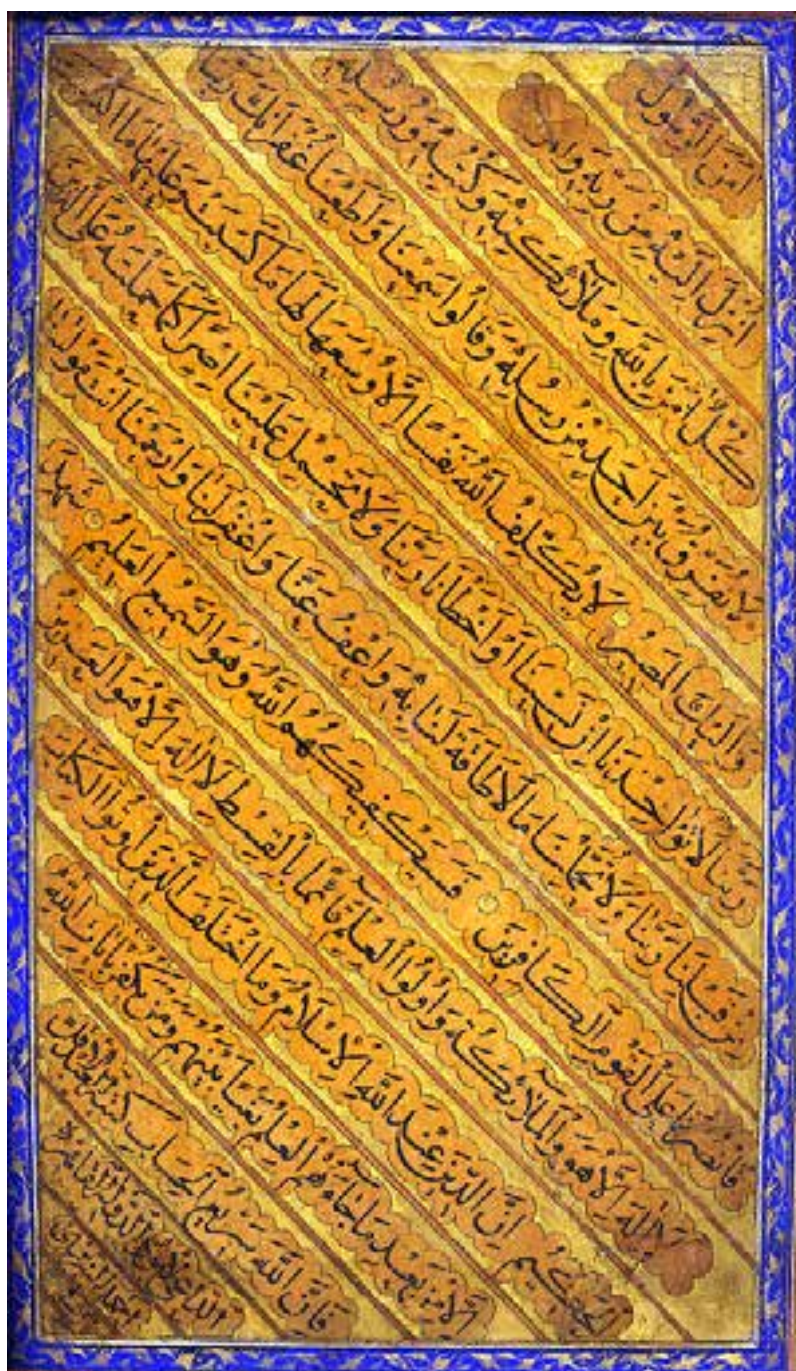 اٰمَنَ الرَّسُولُ
اُنْزِلَ اِلَيْهِ مِنْ رَبِّهِ
كُلٌّ اٰمَنَ بِاللّٰهِ وَمَلٰٓائِكَتِهِ وَكُتُبِهِ وَرُسُلِهِ
لَا نُفَرِّقُ بَيْنَ اَحَدٍ مِنْ رُسُلِهِ وَقَالُوا سَمِعْنَا وَاَطَعْنَا غُفْرَانَكَ رَبَّنَا
وَاِلَيْكَ الْمَصِيرُ لَا يُكَلِّفُ اللّٰهُ نَفْسًا اِلَّا وُسْعَهَا لَهَا مَا كَسَبَتْ وَعَلَيْهَا مَا اكْتَسَبَتْ
رَبَّنَا لَا تُؤَاخِذْنَا اِنْ نَسِينَا اَوْ اَخْطَأْنَا رَبَّنَا وَلَا تَحْمِلْ عَلَيْنَا اِصْرًا كَمَا حَمَلْتَهُ عَلَى الَّذِينَ
مِنْ قَبْلِنَا رَبَّنَا وَلَا تُحَمِّلْنَا مَا لَا طَاقَةَ لَنَا بِهِ وَاعْفُ عَنَّا وَاغْفِرْ لَنَا وَارْحَمْنَا اَنْتَ مَوْلَانَا
فَانْصُرْنَا عَلَى الْقَوْمِ الْكَافِرِينَ فَسَيَكْفِيكَهُمُ اللّٰهُ وَهُوَ السَّمِيعُ الْعَلِيمُ شَهِدَ
لَا اِلٰهَ اِلَّا هُوَ وَالْمَلٰٓائِكَةُ وَاُولُوا الْعِلْمِ قَائِمًا بِالْقِسْطِ لَا اِلٰهَ اِلَّا هُوَ الْعَزِيزُ
الْحَكِيمُ اِنَّ الدِّينَ عِنْدَ اللّٰهِ الْاِسْلَامُ وَمَا اخْتَلَفَ الَّذِينَ اُوتُوا الْكِتَابَ
اِلَّا مِنْ بَعْدِ مَا جَاءَهُمُ الْعِلْمُ بَغْيًا بَيْنَهُمْ وَمَنْ يَكْفُرْ بِاٰيَاتِ اللّٰهِ
فَاِنَّ اللّٰهَ سَرِيعُ الْحِسَابِ كتبه
احمد النيريزي